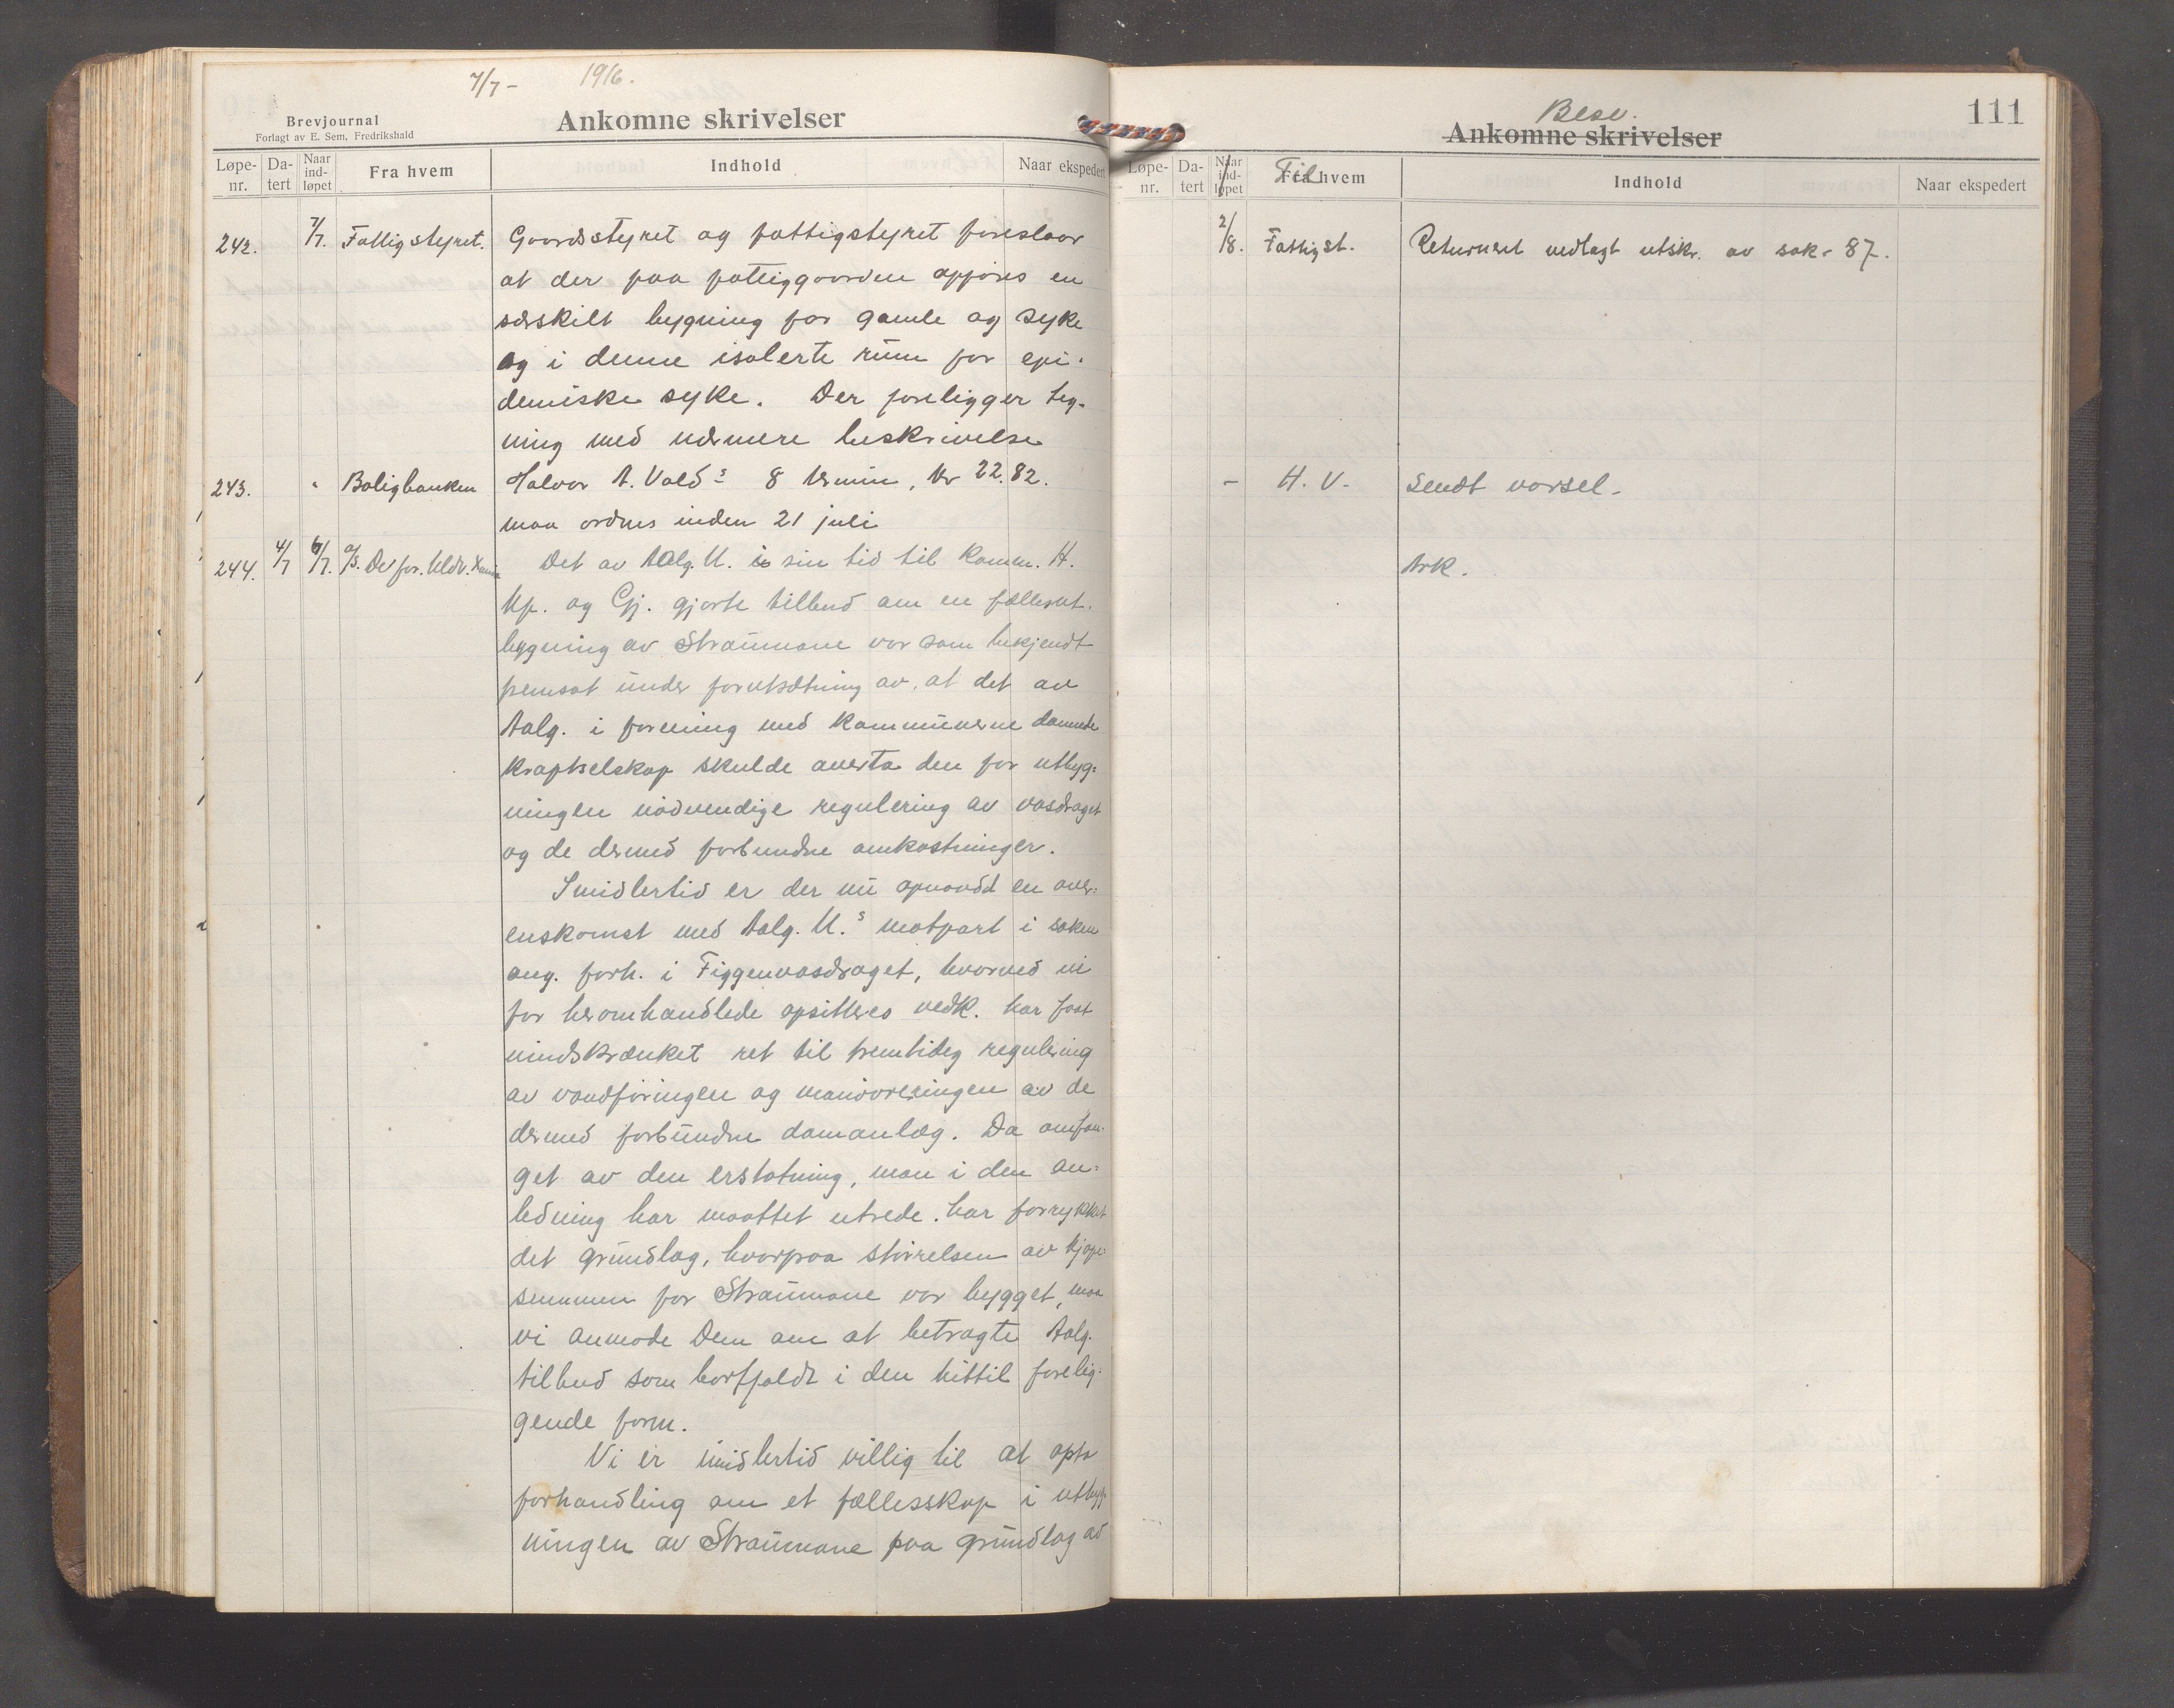 7/7 - 1916.
Brevjournal
Forlagt av E. Sem, Fredrikshald
Ankomne skrivelser
Løpe-nr. Da-tert Naar ind-løpet Fra hvem Indhold Naar ekspedert
242. 7/7. Fattigstyret. Gaardsstyret og fattigstyret foreslaar
at der paa fattiggaarden opføres en
særskilt bygning for gamle og syke
og i denne isolerte rum for epi-
demiske syke. Der foreligger teg-
ning med nærmere beskrivelse
243. " Boligbanken Halvor A. Valds 8 termin, kr 22.82.
maa ordnes inden 21 juli
244. 4/7 6/7. a/s. De for. Uldv. Det av Aalg. U. i sin tid til komm. H.
Kp. og Gj. gjorte tilbud om en fællesut-
bygning av Straumane var som bekjendt
fremsat under forutsætning av, at det av
Aalg. i forening med kommunerne dannede
kraftselskap skulde overta den for utbyg-
ningen nødvendige regulering av vasdraget
og de dermed forbundne omkostninger.
Imidlertid er der nu opnaadd en over-
enskomst med Aalg. U.s motpart i saken
ang. forh. i Figgenvasdraget, hvorved vi
for heromhandlede opsitteres vedk. har faat
uindskrænket ret til fremtidig regulering
av vandføringen og manøvreringen av de
dermed forbundne damanlæg. Da omfan-
get av den erstatning, man i den an-
ledning har maattet utrede, har forrykket
det grundlag, hvorpaa størrelsen av kjøpe-
summen for Straumane var bygget, maa
vi anmode Dem om at betragte Aalg.
tilbud som bortfaldt i den hittil forelig-
gende form.
Vi er imidlertid villig til at opta
forhandling om et fællesskap i utbyg-
ningen av Straumane paa grundlag av
111
Besv.
Ankomne skrivelser
Løpe-nr. Da-tert Naar ind-løpet Fra hvem Til Indhold Naar ekspedert
2/8. Fattigst. Returnert vedlagt utskr. av sak - 87.
- H. V. - Sendt varsel -
Ark.